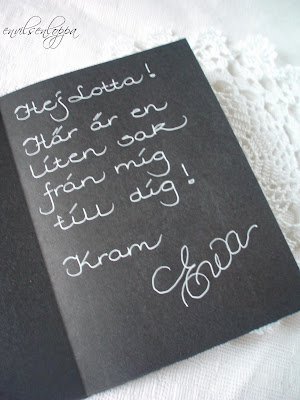 envilsenloppa
Hej Lotta!
Här är en
liten sak
från mig
till dig!
Kram
Ewa